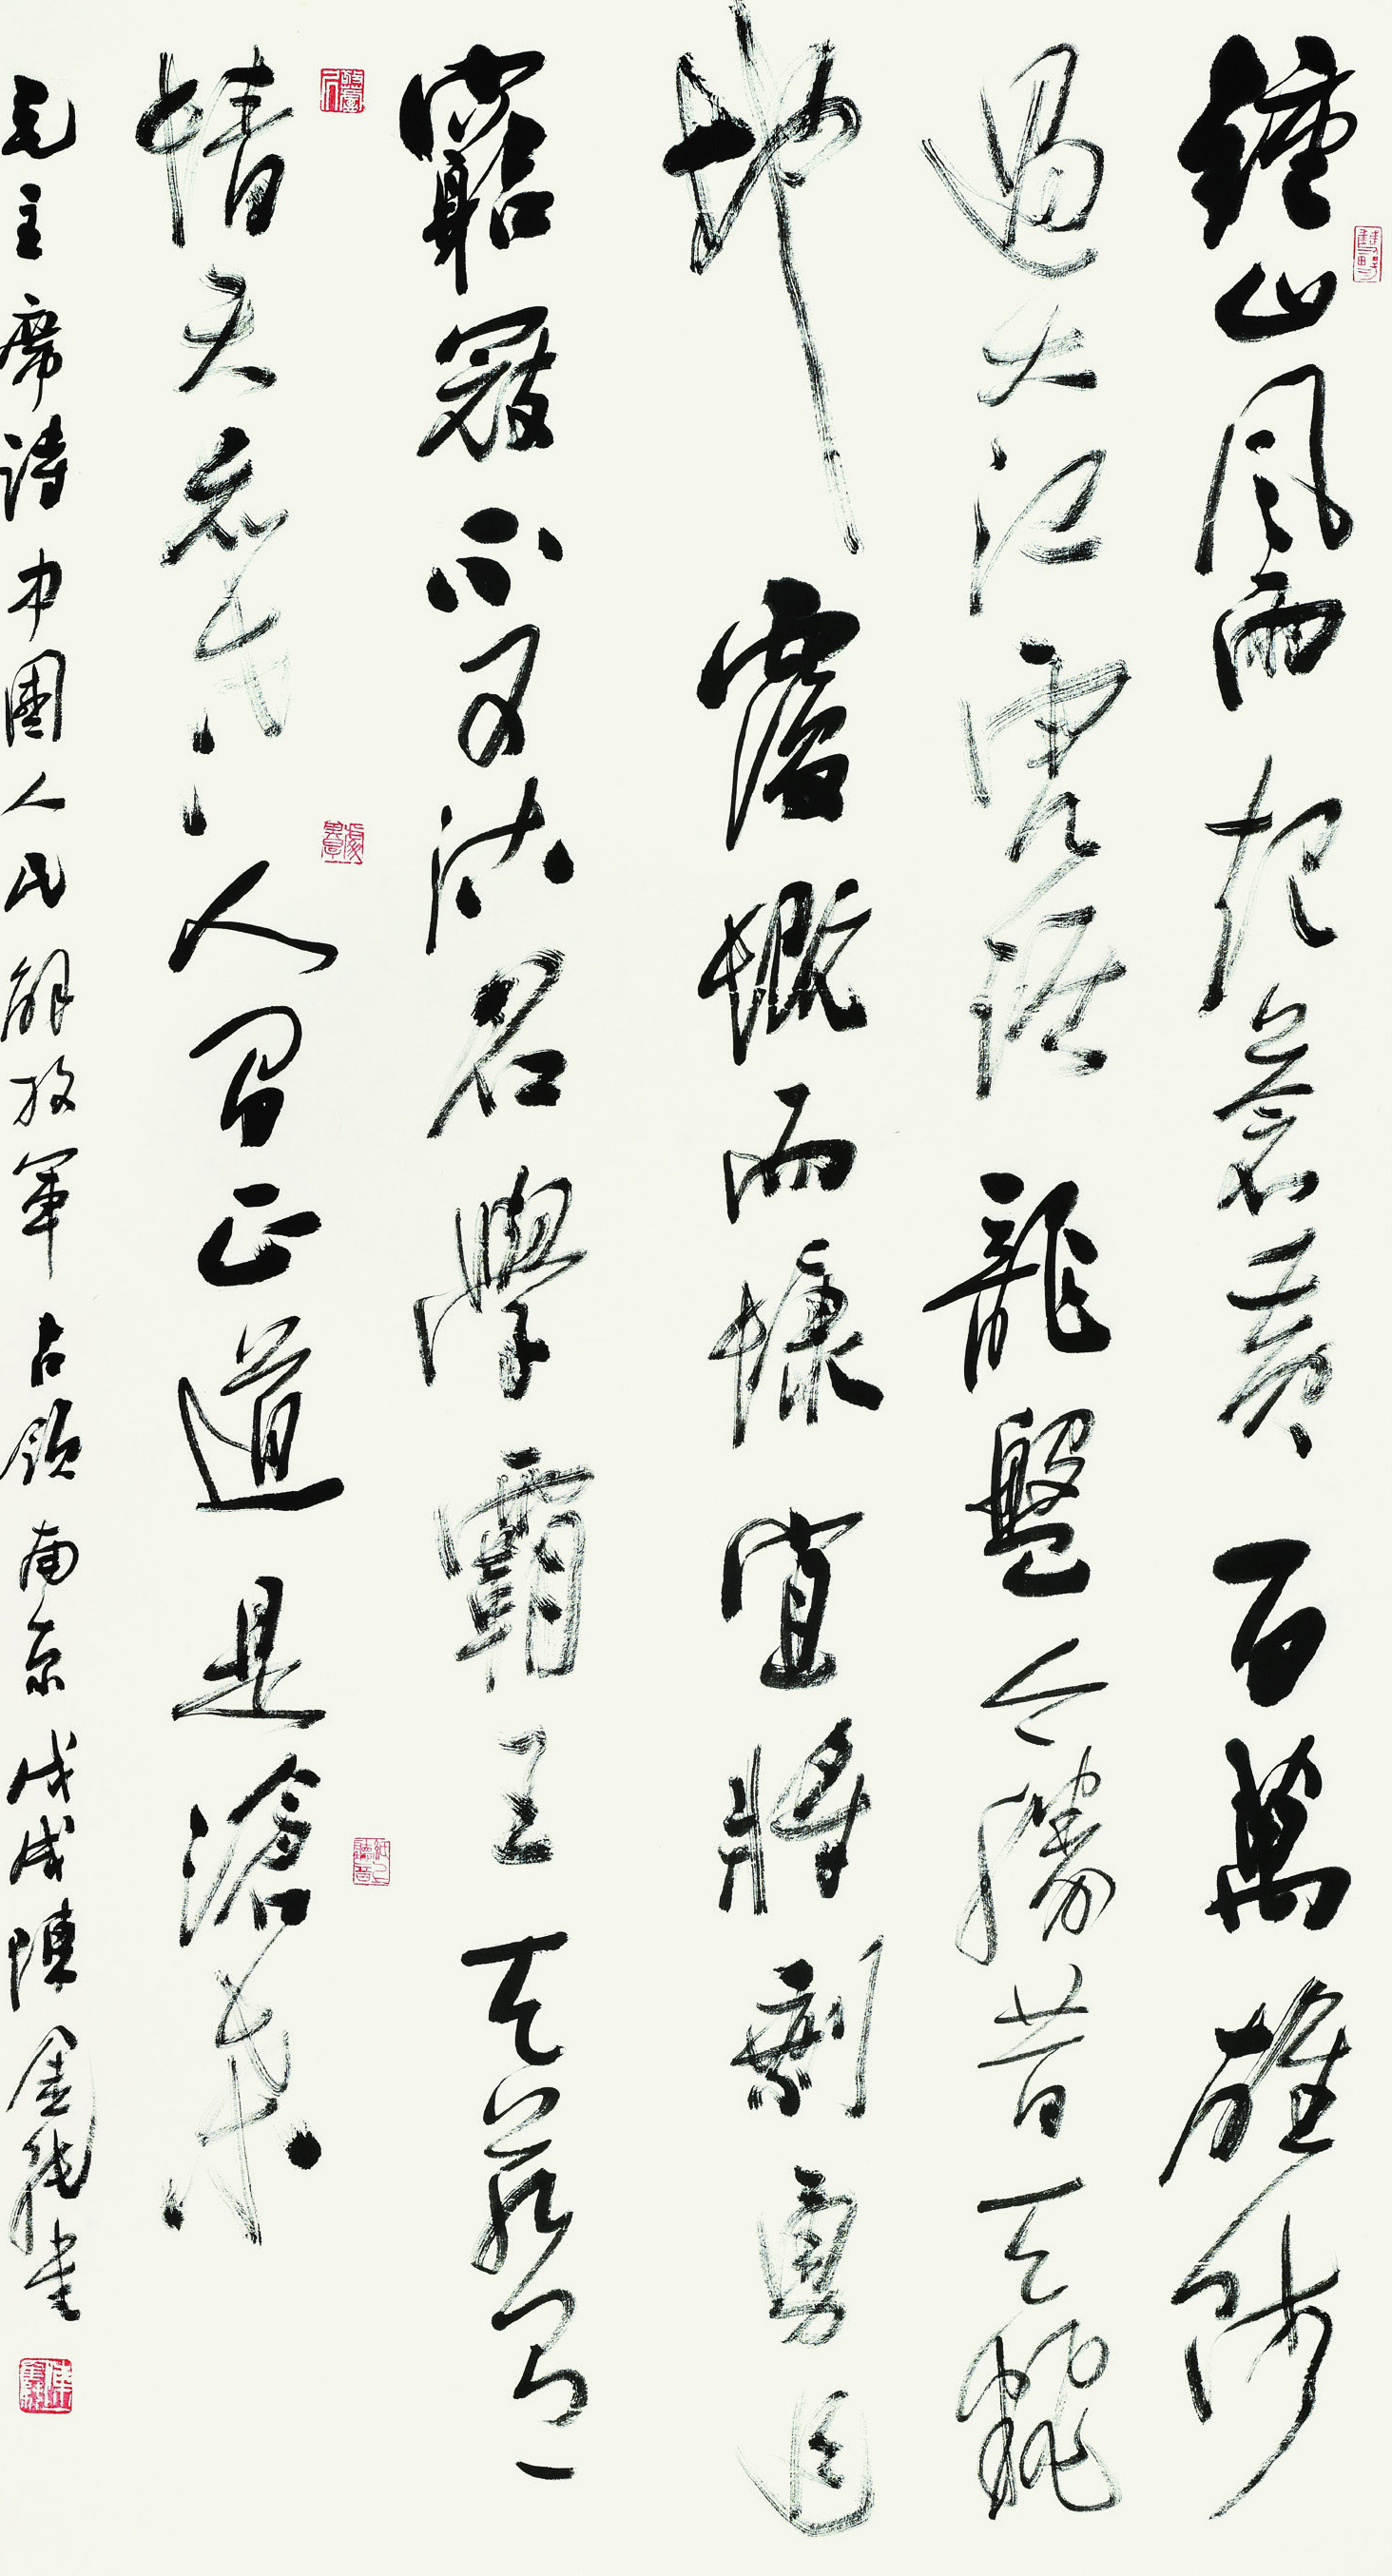 鍾山風雨起蒼黃百萬雄師
過大江虎踞龍盤今勝昔天翻
地覆慨而慷宜將剩勇追
窮寇不可沽名學霸王天若有
情天亦老人間正道是滄桑
毛主席詩中國人民解放軍占領南京戊戌陳金書